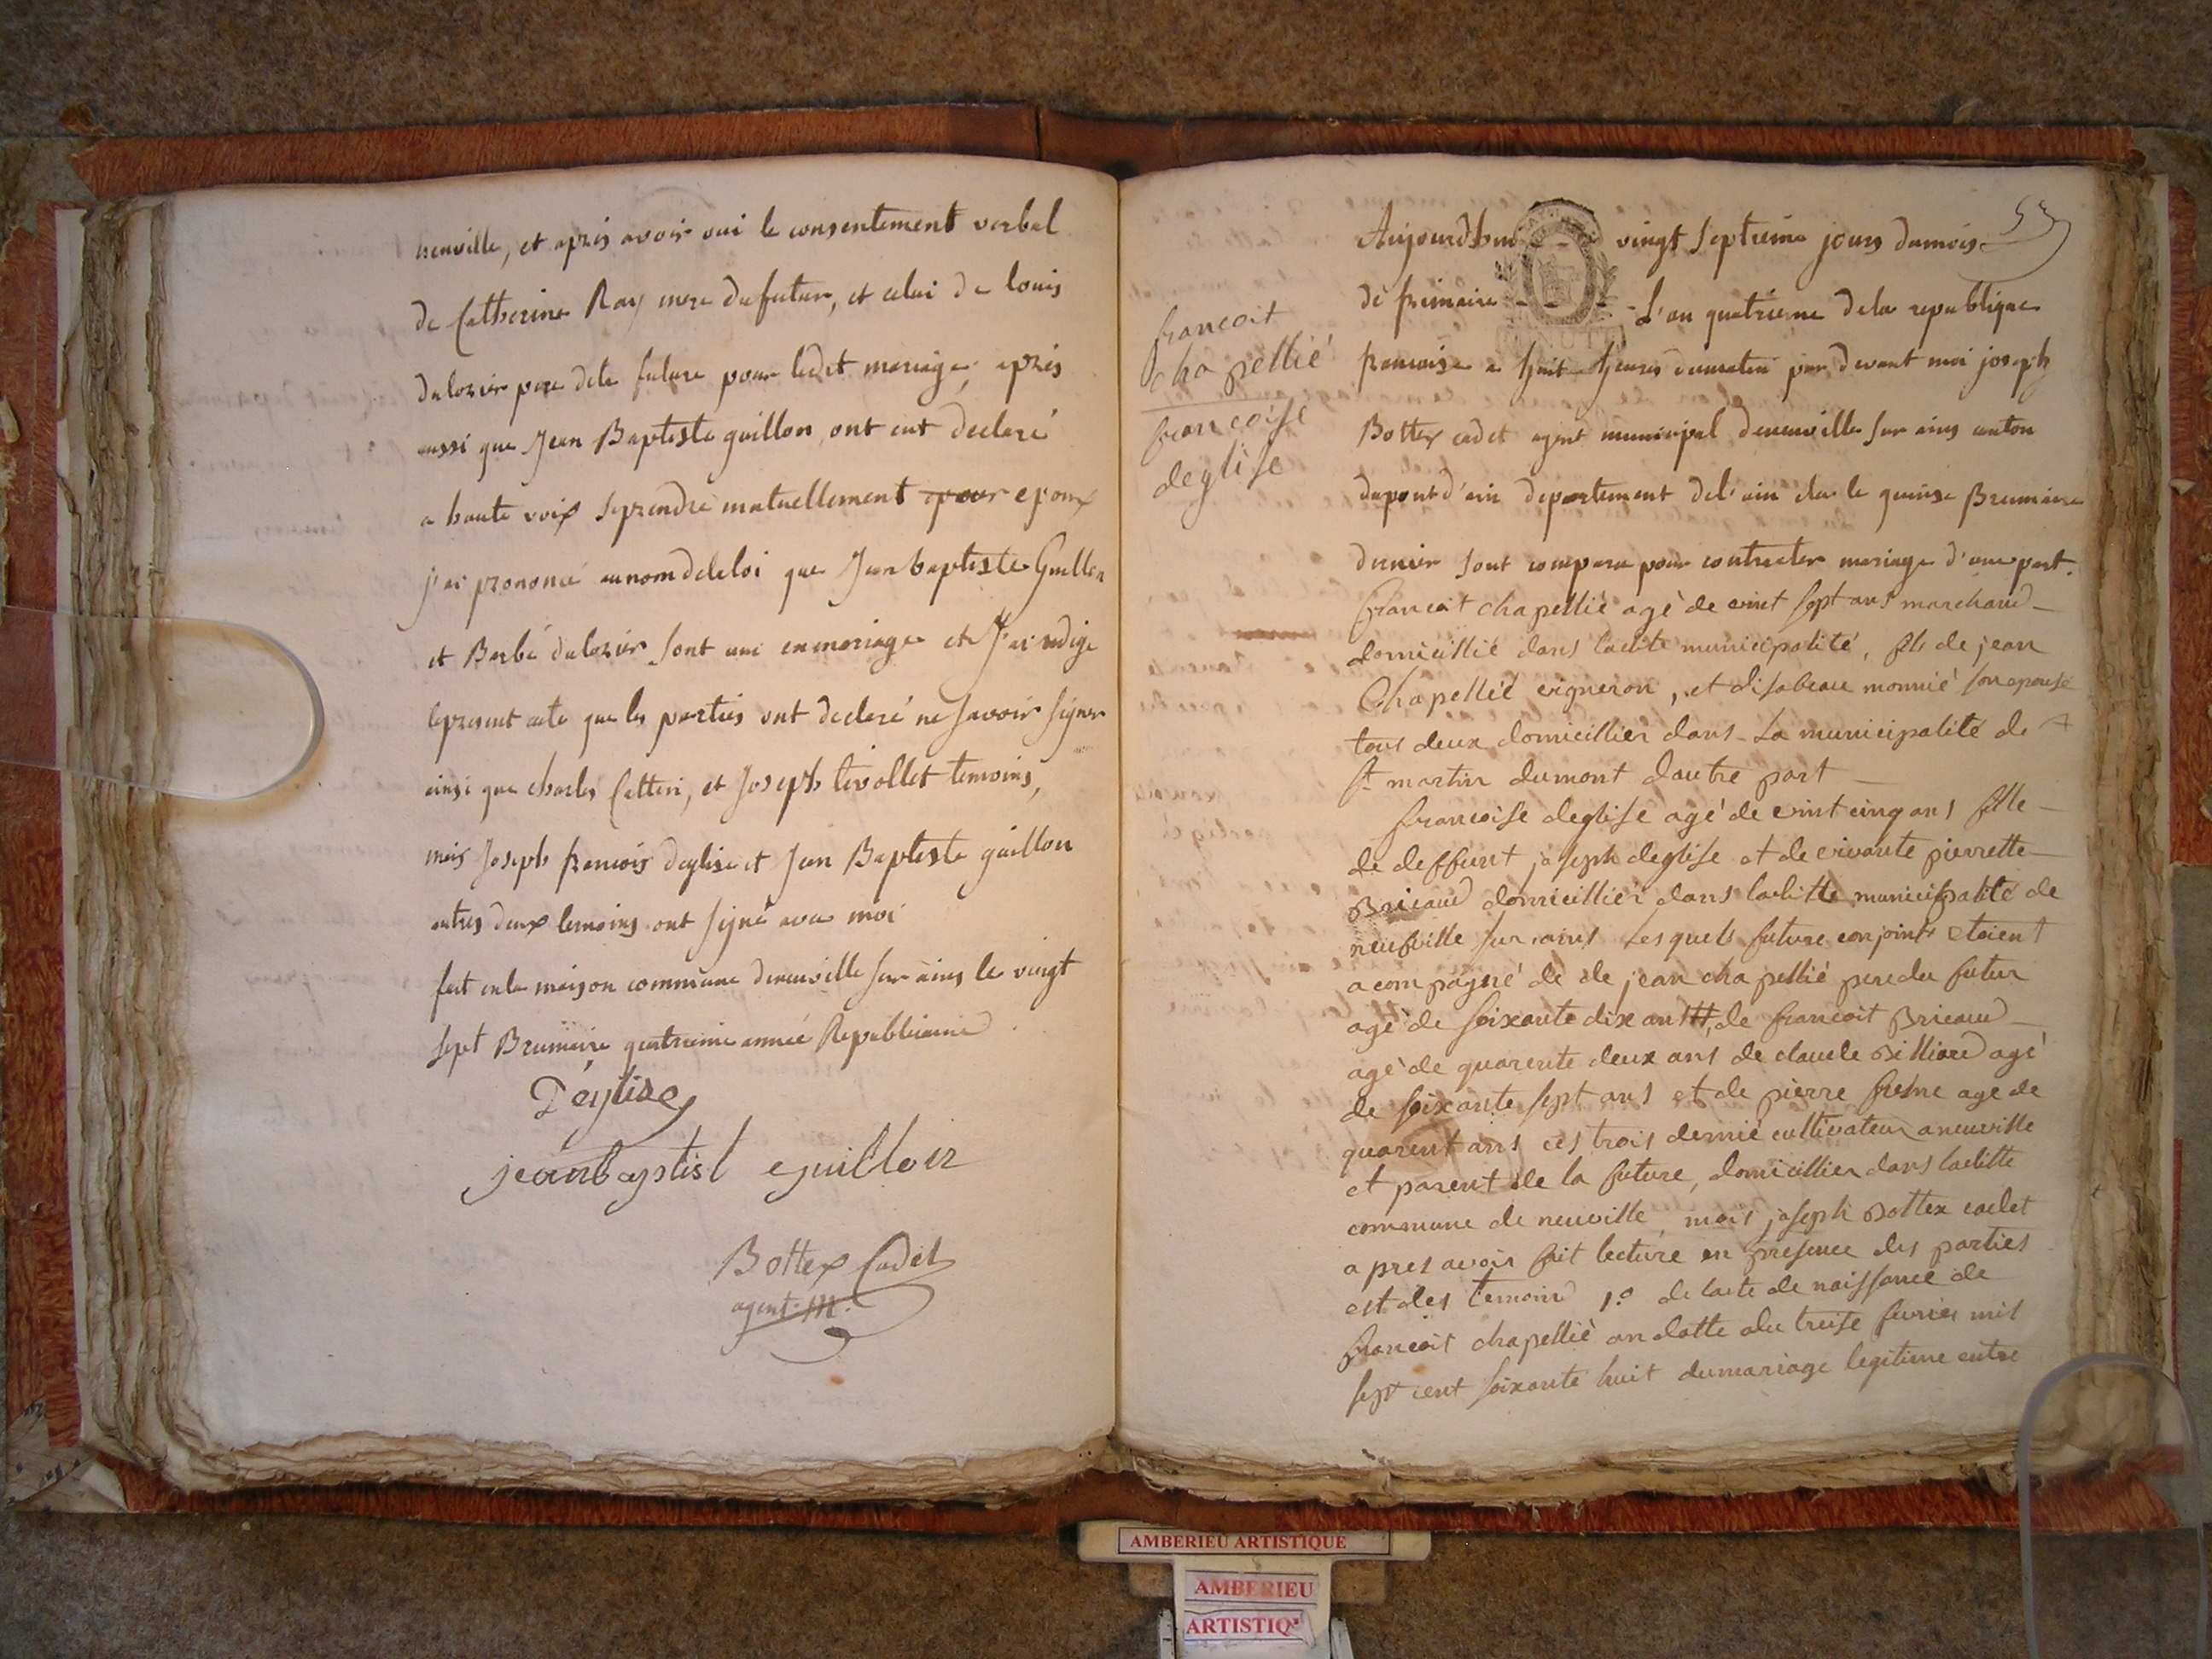 neuville, et apris avoir oui le consentement verbal
de Catherine Ray mere du futur, et celui de louis
dulozier pere dela future pour ledit mariage, apris
aussi que Jean Baptiste guillon ont eut declaré
a haute voix se prendre mutuellement epoux
j'ai prononcé au nom dela loi que Jean baptiste Guillon
et Barbe dulozier sont uni en mariage et J'ai redige
le present acte que les parties ont declaré ne savoir signer
ainsi que charles Cattin, et Joseph levollet temoins,
mais Joseph francois deglise et Jean Baptiste guillon
autres deux temoins ont signé avec moi
fait en la maison commune deneuville sur ains le vingt
sept Brumaire quatrieme année Republicaine
Deglise
jeanbaptist guillon
Bottex Cadet
agent m.
francoit
chapellié
francoise
deglise
53
Aujourdhui vingt septieme jours dumois
de frimaire L'an quatrieme dela republique
francaise a huit heures dumatin par devant moi joseph
Bottex cadet agent municipal deneuville sur ains canton
dupont d'ain departement del'ain elu le quinse Brumaire
dernier sont comparu pour contracter mariage d'une part.
francoit chapellié agé de vint sept ans marchand
domicillié dans ladite municipalité, fils de jean
Chapellié vigneron, et disabeau monnié son epouse
tous deux domicillier dans La municipalité de
st martin dumont dautre part
francoise deglise agé de vint cinq ans fille
de deffunt joseph deglise et de vivante pierrette
Bricaud domicillier dans laditte municipalité de
neufville sur ains Lesquels future conjoints etoient
acompagné de de jean chapellié pere du futur
agé de soixante dix ans de francoit Bricaud
agé de quarente deux ans de claude Billiard agé
de soixante sept ans et de pierre agé de
quarent ans ces trois dernié cultivateur aneuville
et parent de la future, domicillier dans laditte
commune de neuville, mois joseph Bottex cadet
apres avoir fait lecture en presence des parties
est des temoins 1.o de lacte de naissance de
francoit chapellié an datte du treise fevrier mil
sept cent soixante huit dumariage legitime entre
AMBERIEU ARTISTIQUE
AMBERIEU
ARTISTIQ